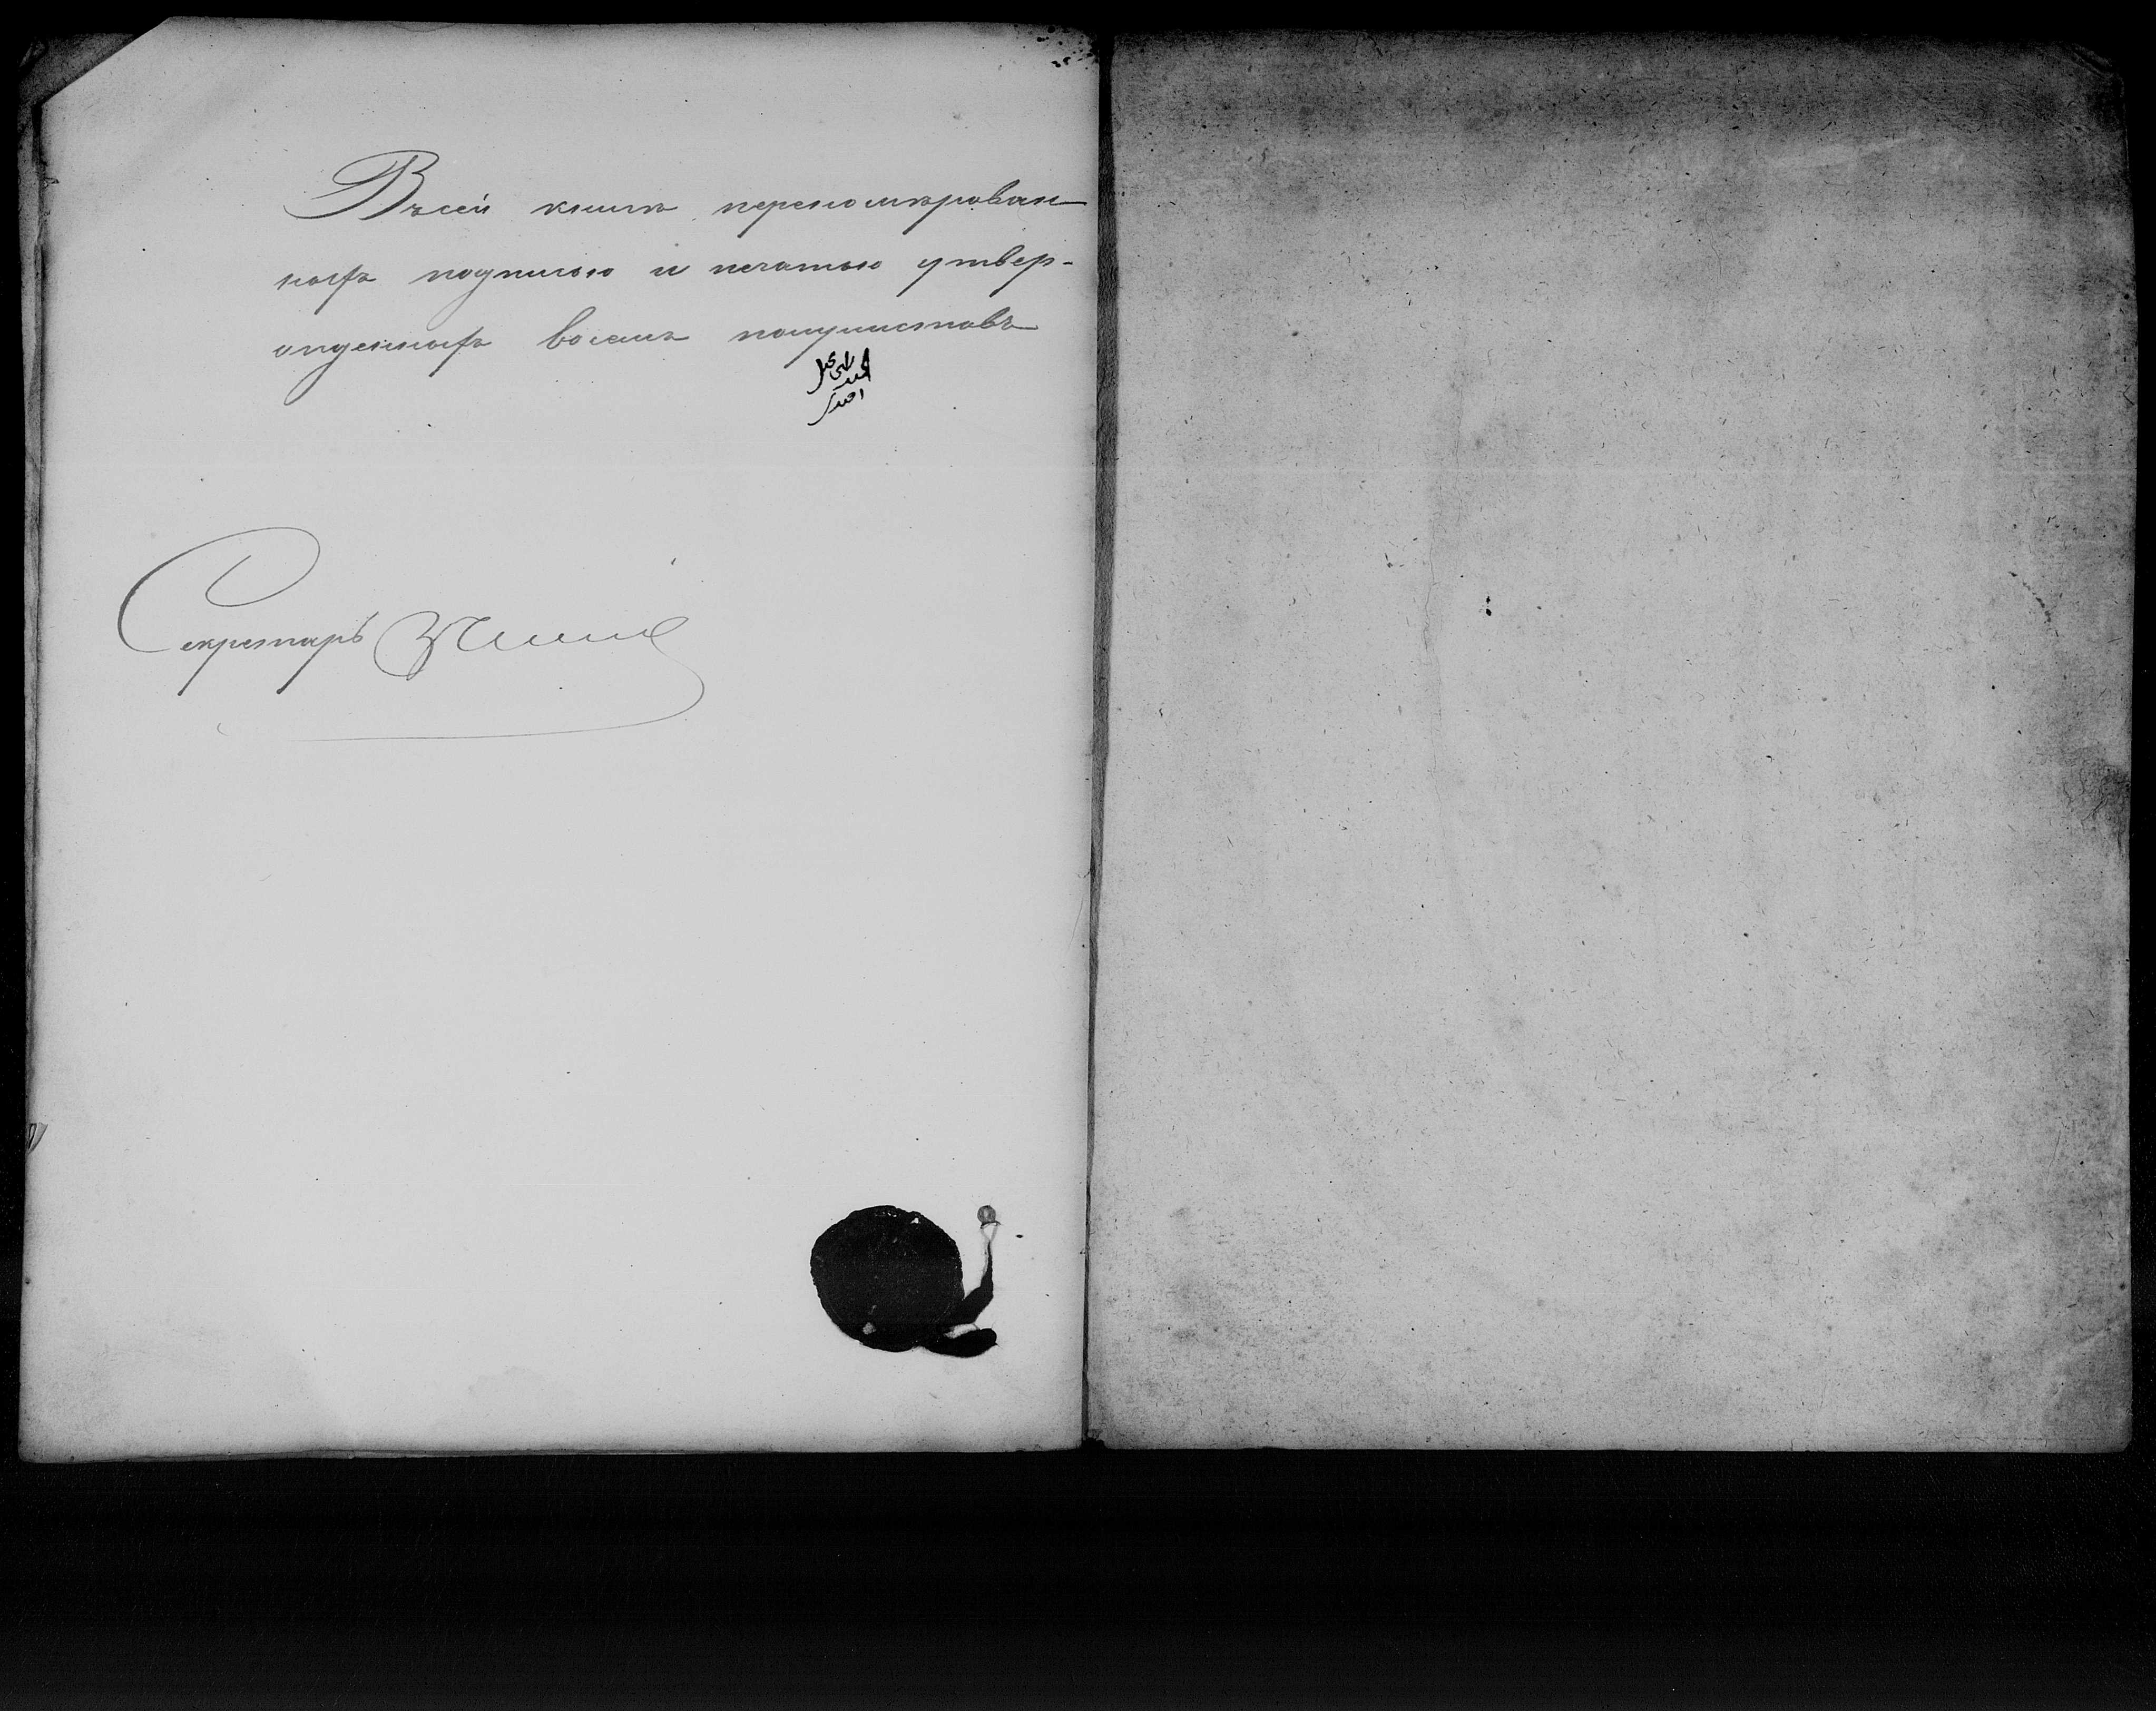 Въ сей книгѣ переномѣрован-
ныхъ подписью и печатью утвер-
жденныхъ восемь полулистовъ
Секретарь